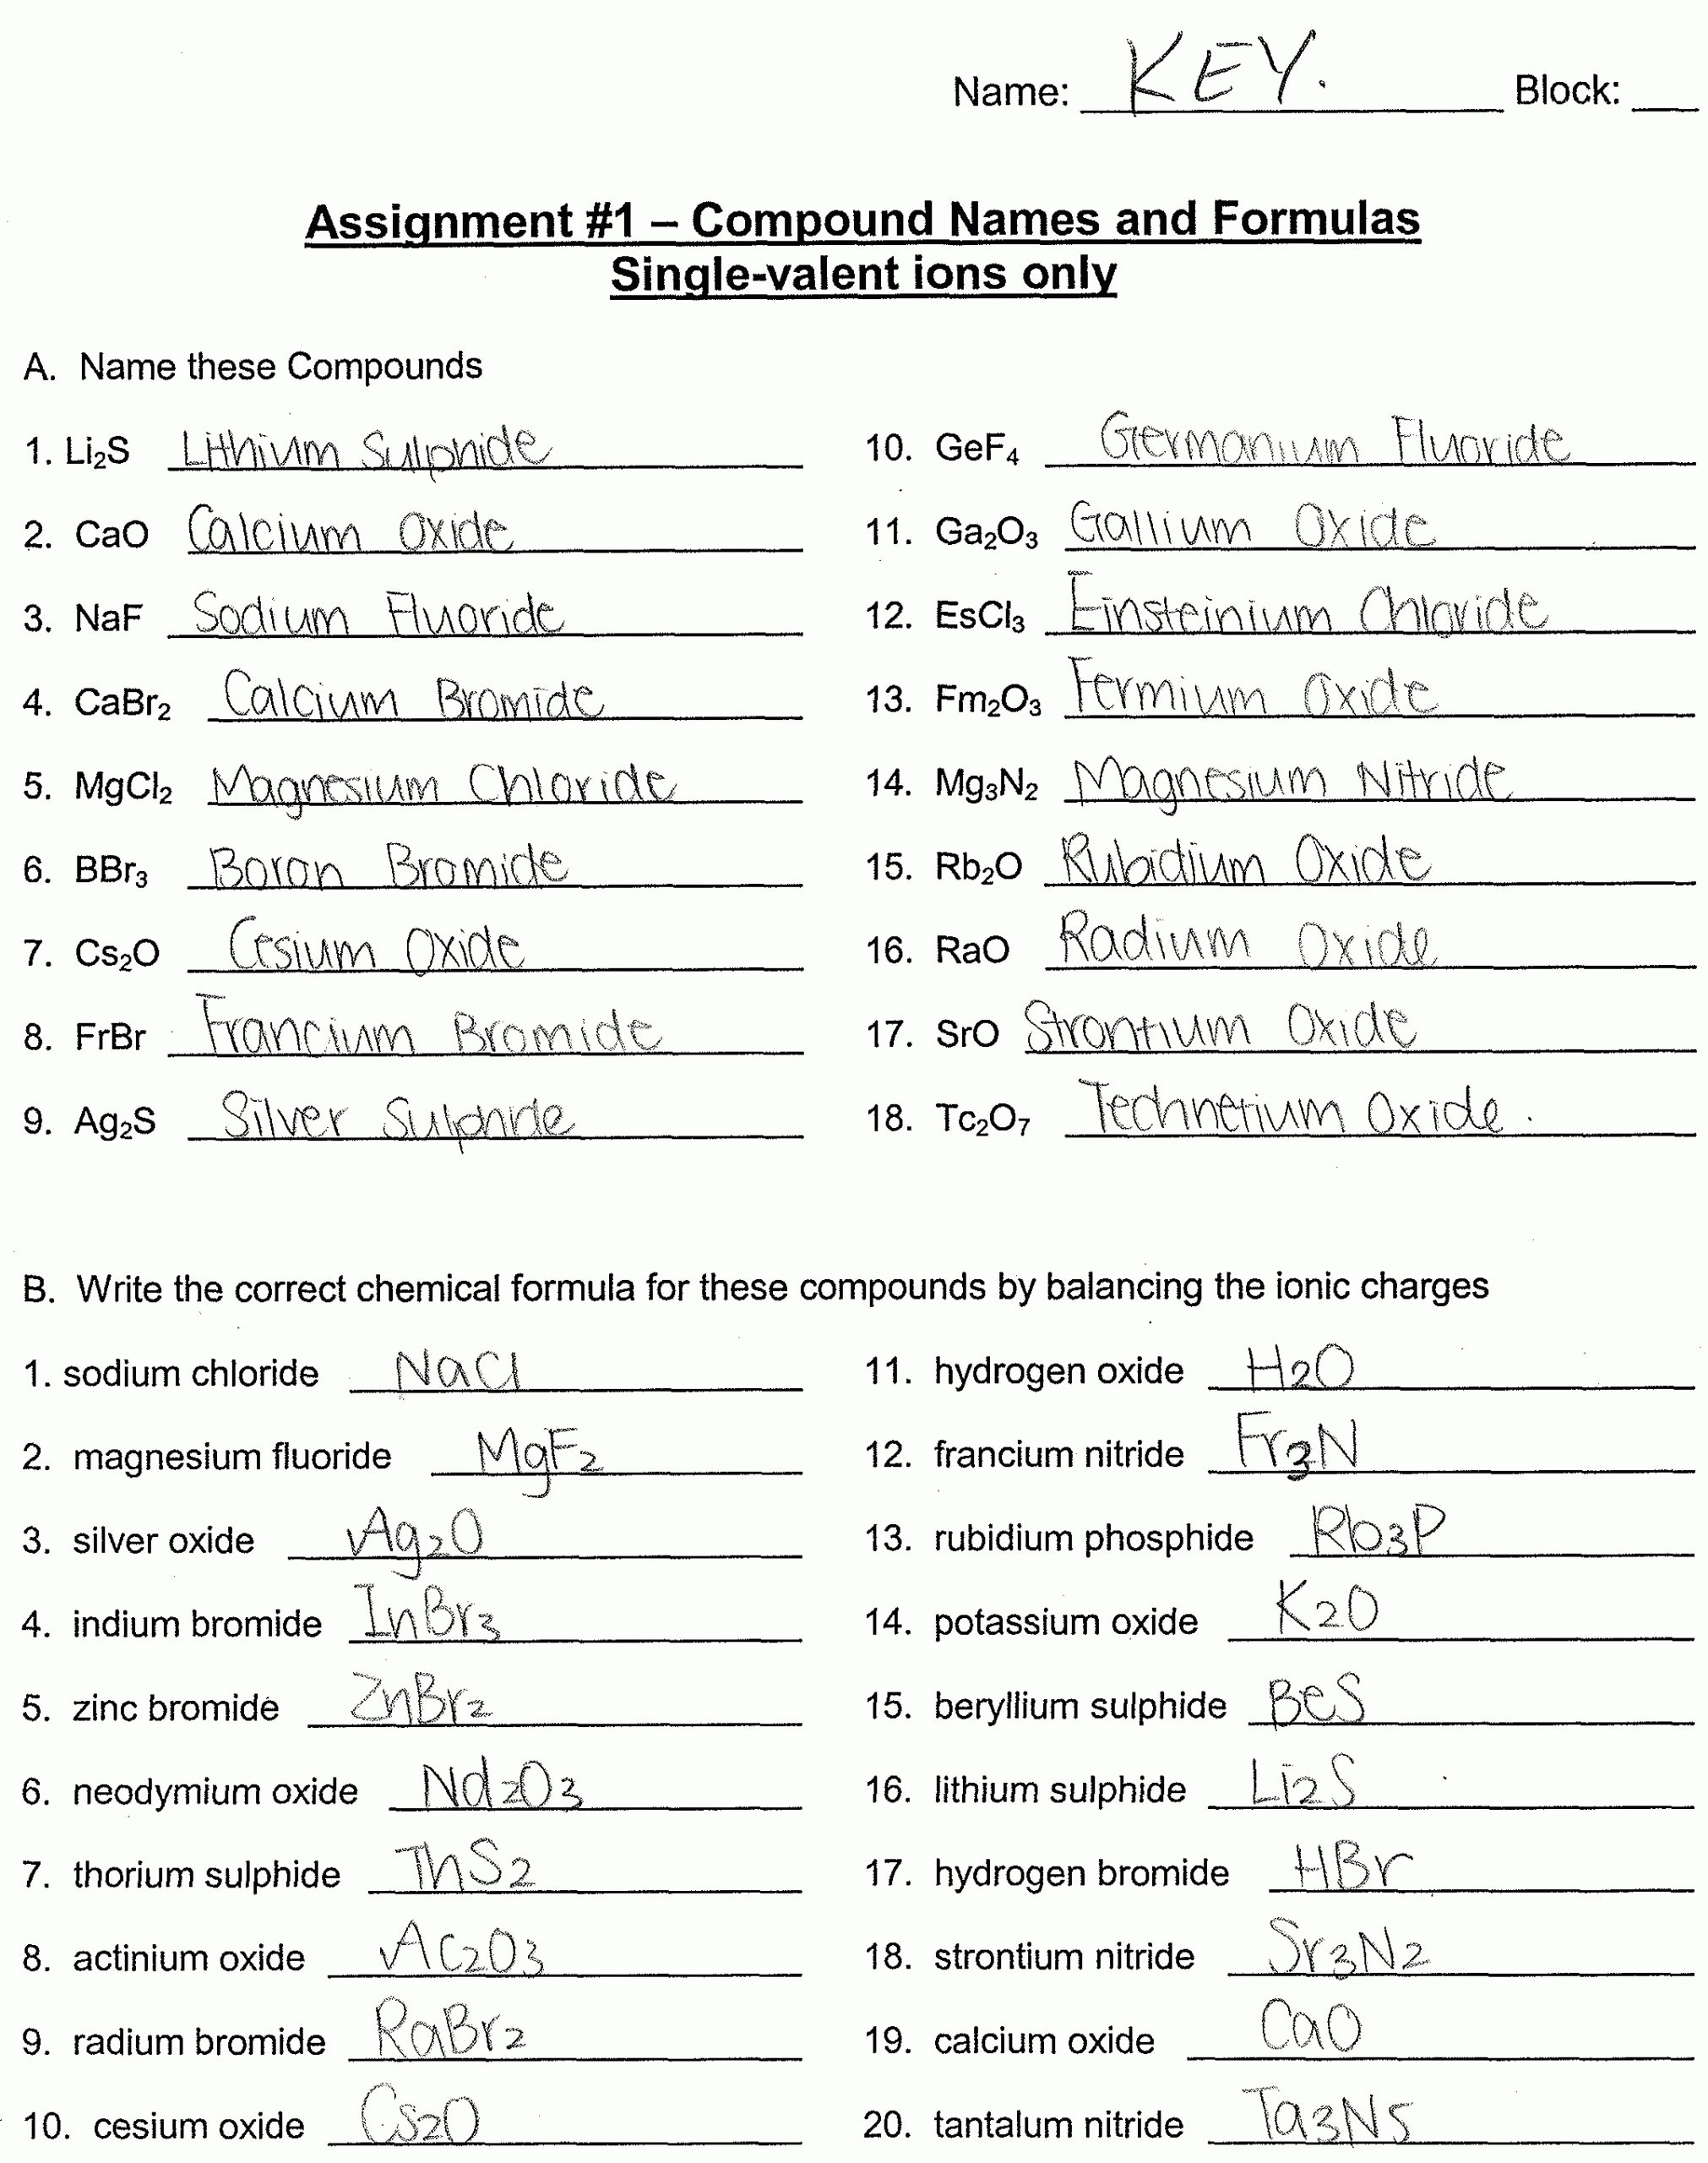 Name: KEY. Block: ___
Assignment #1 – Compound Names and Formulas
Single-valent ions only
A. Name these Compounds
1. Li₂S Lithium Sulphide
2. CaO Calcium Oxide
3. NaF Sodium Fluoride
4. CaBr₂ Calcium Bromide
5. MgCl₂ Magnesium Chloride
6. BBr₃ Boron Bromide
7. Cs₂O Cesium Oxide
8. FrBr Francium Bromide
9. Ag₂S Silver Sulphide
10. GeF₄ Germanium Fluoride
11. Ga₂O₃ Gallium Oxide
12. EsCl₃ Einsteinium Chloride
13. Fm₂O₃ Fermium Oxide
14. Mg₃N₂ Magnesium Nitride
15. Rb₂O Rubidium Oxide
16. RaO Radium Oxide
17. SrO Strontium Oxide
18. Tc₂O₇ Technetium Oxide.
B. Write the correct chemical formula for these compounds by balancing the ionic charges
1. sodium chloride NaCl
2. magnesium fluoride MgF₂
3. silver oxide Ag₂O
4. indium bromide InBr₃
5. zinc bromide ZnBr₂
6. neodymium oxide Nd₂O₃
7. thorium sulphide ThS₂
8. actinium oxide Ac₂O₃
9. radium bromide RaBr₂
10. cesium oxide Cs₂O
11. hydrogen oxide H₂O
12. francium nitride Fr₃N
13. rubidium phosphide Rb₃P
14. potassium oxide K₂O
15. beryllium sulphide BeS
16. lithium sulphide Li₂S
17. hydrogen bromide HBr
18. strontium nitride Sr₃N₂
19. calcium oxide CaO
20. tantalum nitride Ta₃N₅